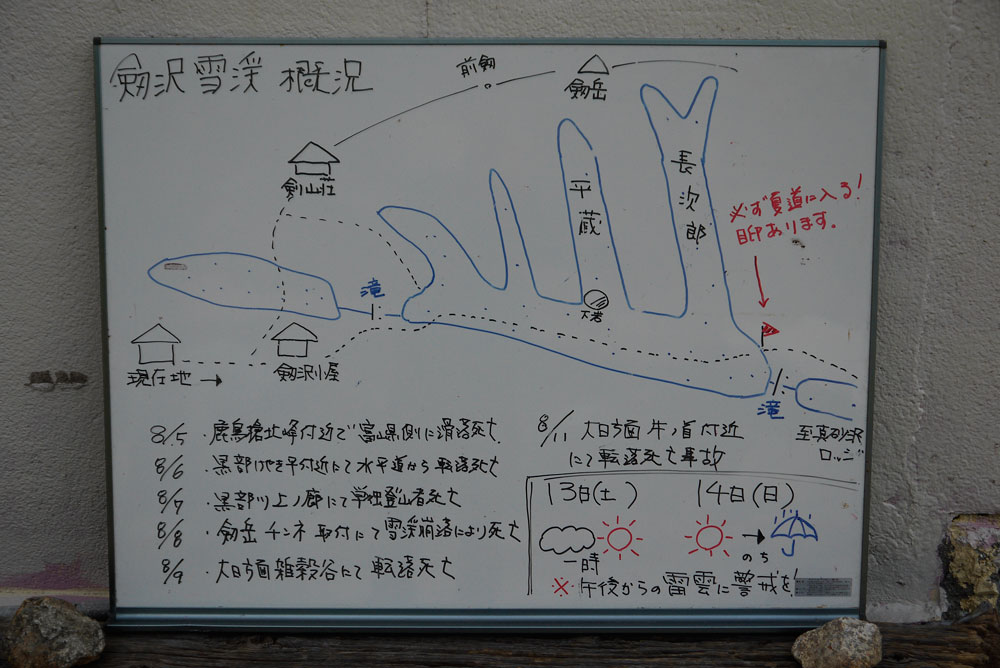 劔沢雪渓 概況
前劔
劔岳
剣山荘
長次郎
平蔵
必ず夏道に入る!
目印あります。
滝
大岩
現在地 →
劔沢小屋
滝
至真砂沢
ロッジ
8/5 ・鹿島槍北峰付近で富山県側に滑落死亡
8/6 ・黒部けやき平付近にて水平道から転落死亡
8/7 ・黒部川上ノ廊にて単独登山者死亡
8/8 ・劔岳 チンネ 取付にて雪渓崩落により死亡
8/9 ・大日方面雑穀谷にて転落死亡
8/11 大日方面 牛ノ首付近
にて転落死亡事故
13日(土) 14日(日)
一時 のち
※ 午後からの雷雲に警戒を!